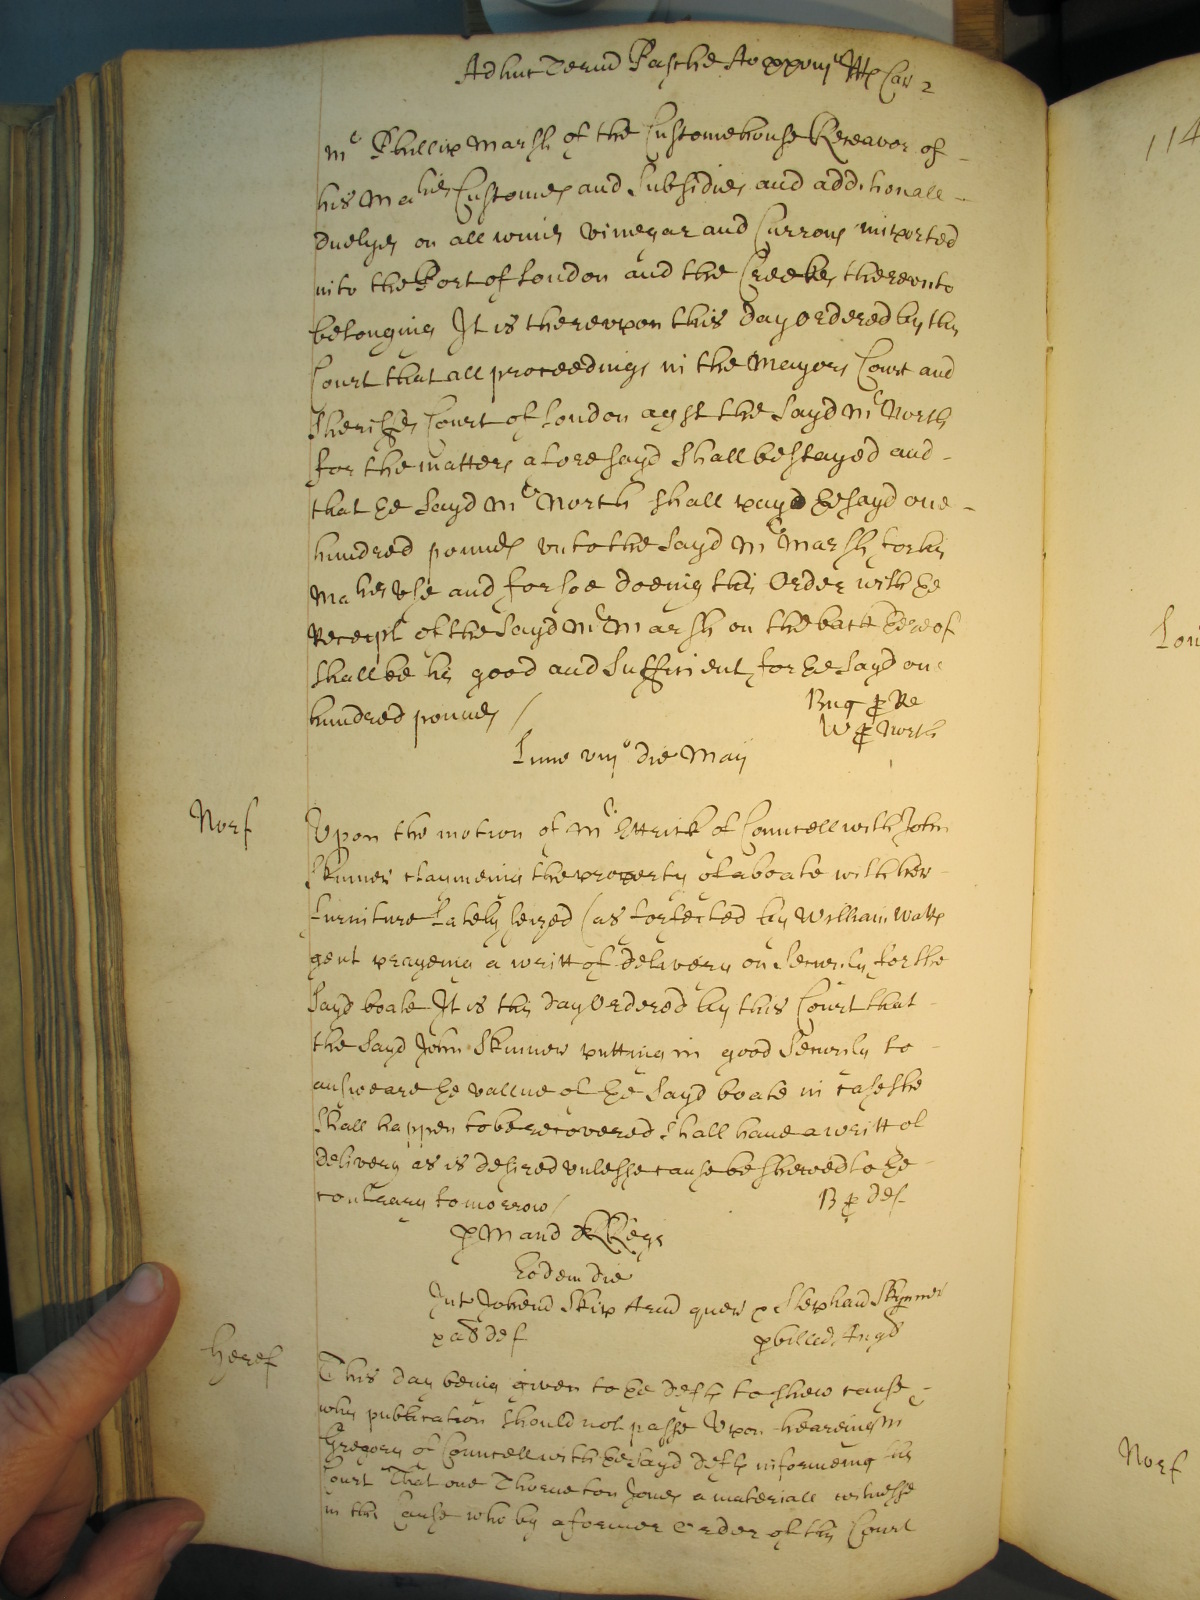 Adhuc Termd Pasche Ao xxviijo RRs Car 2
mr Phillip Marsh of the Customehouse Receavor of
his Maties Customes and Subsidies and additionall
Duetyes on all wines vinegar and Currons imported
into the Port of London and the Creekes thereunto
belonging It is thereupon this day Ordered by this
Court that all proceedings in the Mayors Court and
Sheriffes Court of London agst the Sayd mr North
for the matters aforesayd Shall be Stayed and
that ye Sayd mr North shall pay ye sayd one
hundred pounds unto the Sayd mr Marsh for his
Maties use and for soe doeing this Order with ye
Receipt of the Sayd mr Marsh on the back hereof
shall be his good and Sufficient for ye Sayd one
hundred pounds /
Bug p Re
W p North
Lune viijo die Maij
Norf
Upon the motion of mr Ettrick of Councell with John
Skinner claymeing the property of a boate with her
furniture Lately Seized (as forfected by William Watts
gent prayeing a writt of delivery on Security for the
Sayd boate It is this day Ordered by this Court that
the Sayd John Skinner putting in good Security to
answeare ye vallue of ye Sayd boate in case She
Shall happen to be recovered Shall have a writt of
delivery as is desired unlesse cause be shewed to ye
contrary tomorrow /
B p def
p M and RRegs
Eodem die
Int Johend Skip Armd quer p Stephand Skynner
p ad def
p billed Angd
Heref
This day being given to ye defts to shew cause
why publication should not passe Upon heareing mr
Gregory of Councell with ye Sayd defts informeing this
Court That one Thorneton Jones a materiall witnesse
in this Cause who by a former Order of this Court
114
Lon
Norf